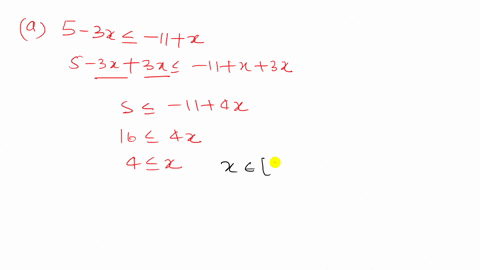 (a) 5-3x ≤ -11+x
5-3x+3x ≤ -11+x+3x
5 ≤ -11+4x
16 ≤ 4x
4 ≤ x x ∈ [